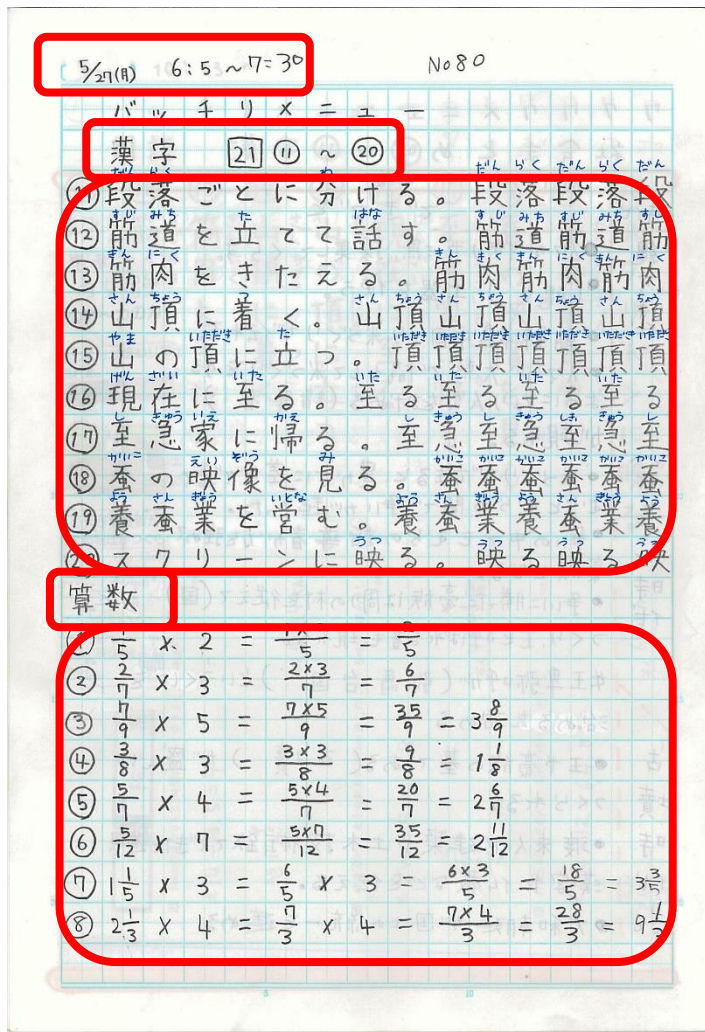 5/27(月) 6:5~7:30 No80
バッチリメニュー
漢字 21 ⑪~⑳
⑪段落ごとに分ける。段落段落段
⑫筋道を立てて話す。筋道筋道筋
⑬筋肉をきたえる。筋肉筋肉筋肉
⑭山頂に着く。山頂山頂山頂山頂
⑮山の頂に立つ。頂頂頂頂頂頂
⑯現在に至る。至る至る至る至る
⑰至急家に帰る。至急至急至急至
⑱蚕の映像を見る。蚕蚕蚕蚕蚕蚕
⑲養蚕業を営む。養蚕業養蚕業養
⑳スクリーンに映る。映る映る映
算数
① 1/5 × 2 = 1×2/5 = 2/5
② 2/7 × 3 = 2×3/7 = 6/7
③ 7/9 × 5 = 7×5/9 = 35/9 = 3 8/9
④ 3/8 × 3 = 3×3/8 = 9/8 = 1 1/8
⑤ 5/7 × 4 = 5×4/7 = 20/7 = 2 6/7
⑥ 5/12 × 7 = 5×7/12 = 35/12 = 2 11/12
⑦ 1 1/5 × 3 = 6/5 × 3 = 6×3/5 = 18/5 = 3 3/5
⑧ 2 1/3 × 4 = 7/3 × 4 = 7×4/3 = 28/3 = 9 1/3